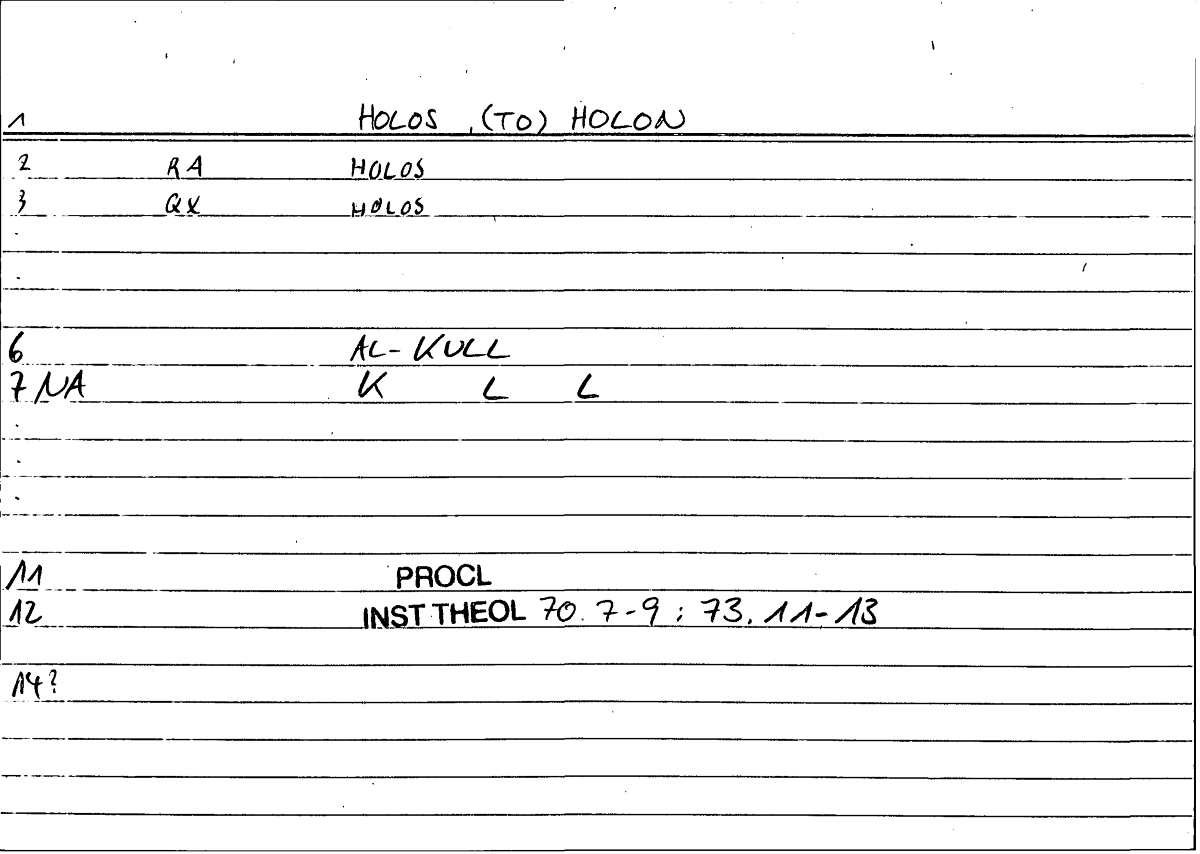 1 HOLOS , (TO) HOLON
2 RA HOLOS
3 QX HOLOS
.
.
6 AL-KULL
7 NA K L L
.
.
.
11 PROCL
12 INST THEOL 70. 7-9 ; 73. 11-13
14?